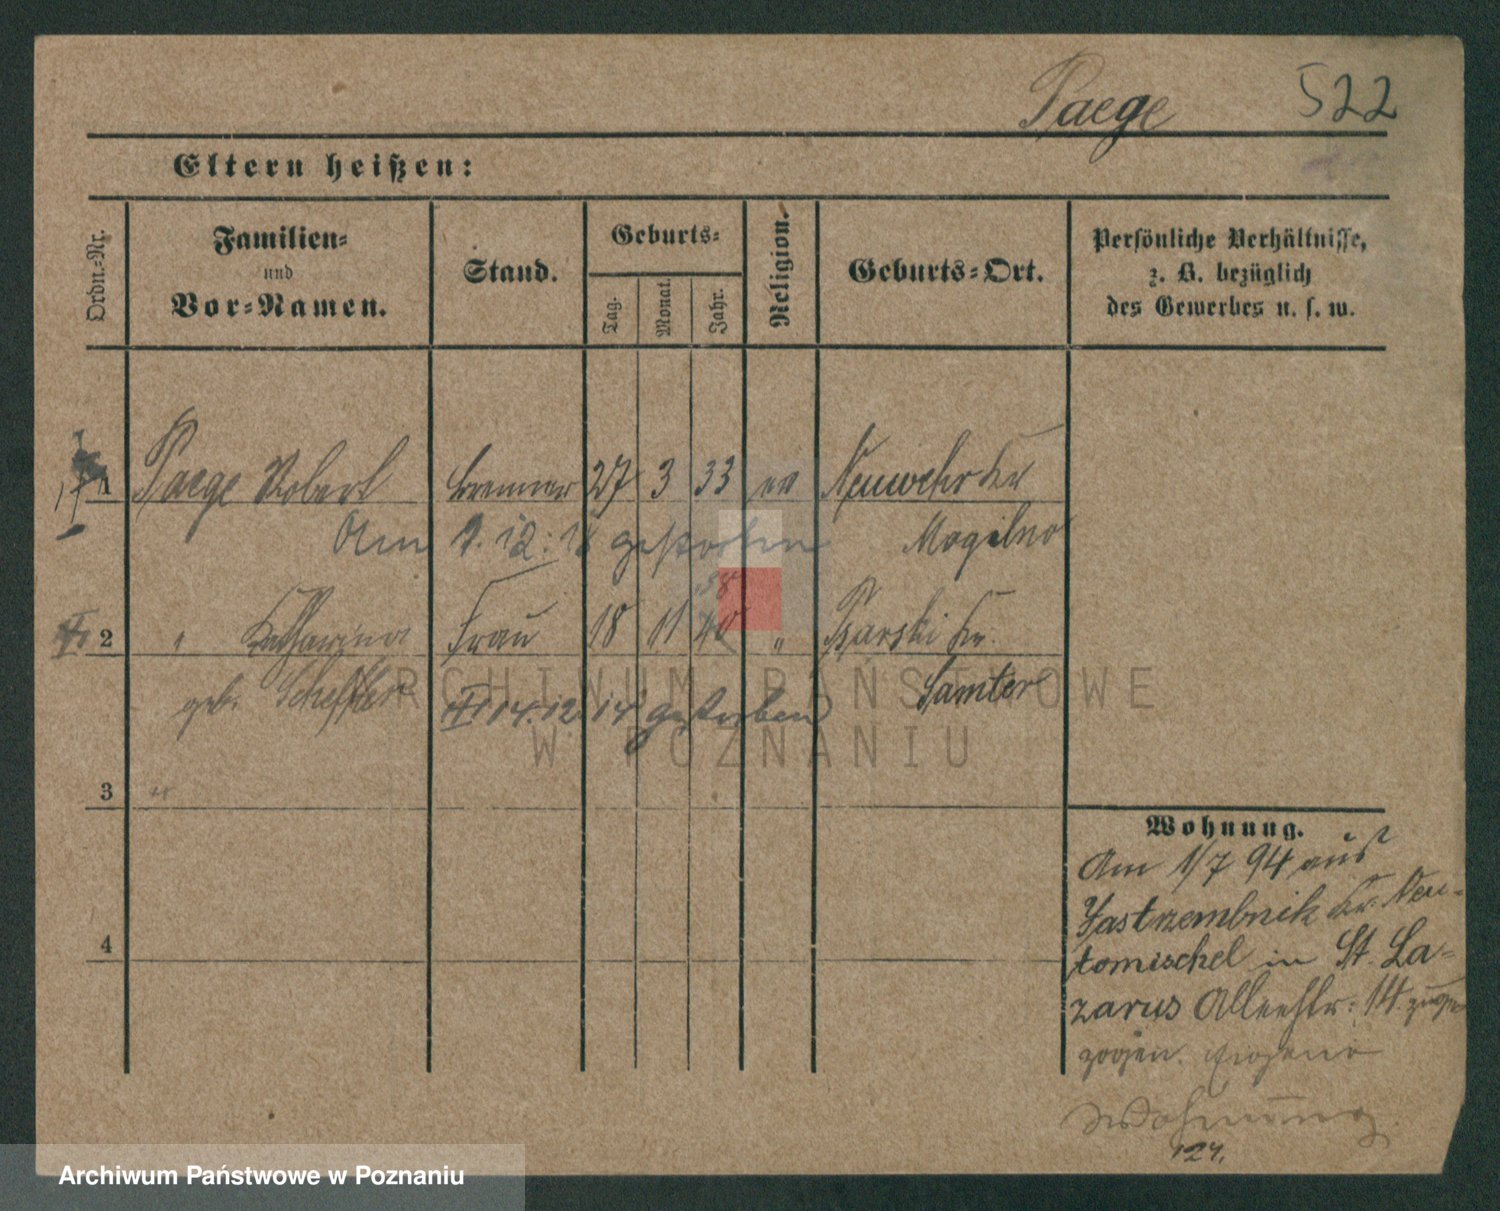 Paege 522
Eltern heißen:
Ordn.-Nr. Familien- und Vor-Namen. Stand. Geburts- Tag. Monat. Jahr. Religion. Geburts-Ort. Persönliche Verhältnisse, z. B. bezüglich des Gewerbes u. s. w.
1 Paege Robert Brenner 27 3 33 ev Neuwehr Kr
Am 9. 12. 18 gestorben Mogilno
38
2 " Katharina Frau 18 11 40 " Psarski Kr.
geb. Scheffler 14. 12. 14 gestorben Samter
3
4
Wohnung.
Am 1/7 94 aus
Jastrzembnik Kr. Neu-
tomischel in St. La-
zarus Alleestr: 14 zuge-
zogen. Eigene
Wohnung.
124.
ARCHIWUM PAŃSTWOWE
W POZNANIU
Archiwum Państwowe w Poznaniu